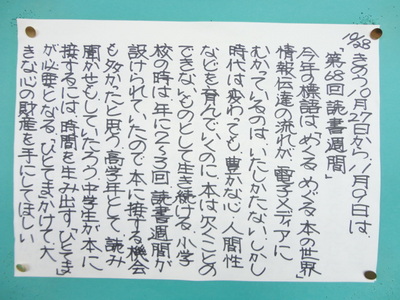 10/28
きのう10月27日から11月9日は、
「第68回読書週間」
今年の標語は「めくる、めぐる本の世界」
情報伝達の流れが、電子メディアに
むかっているのは、いたしかたない。しかし
時代は変わっても、豊かな心・人間性
などを育んでいくのに、本は欠くことの
できないものとして生き続ける。小学
校の時は、年に2〜3回、読書週間が
設けられていたので、本に接する機会
も多かったと思う。高学年として、読み
聞かせもしていたろう。中学生が本に
接するには、時間を生み出す「ひとてま」
が必要となる。ひとてまかけて、大
きな心の財産を手にしてほしい